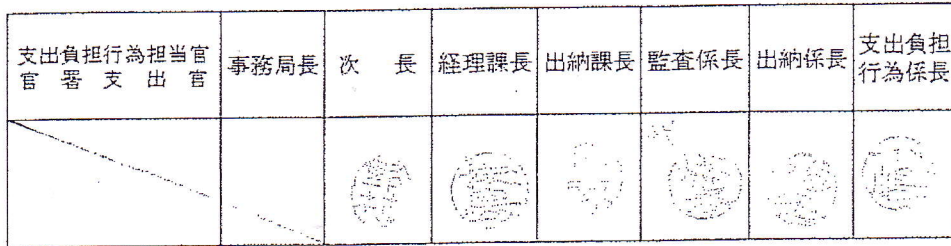 支出負担行為担当官
官署支出官
事務局長
次長
経理課長
出納課長
監査係長
出納係長
支出負担
行為係長